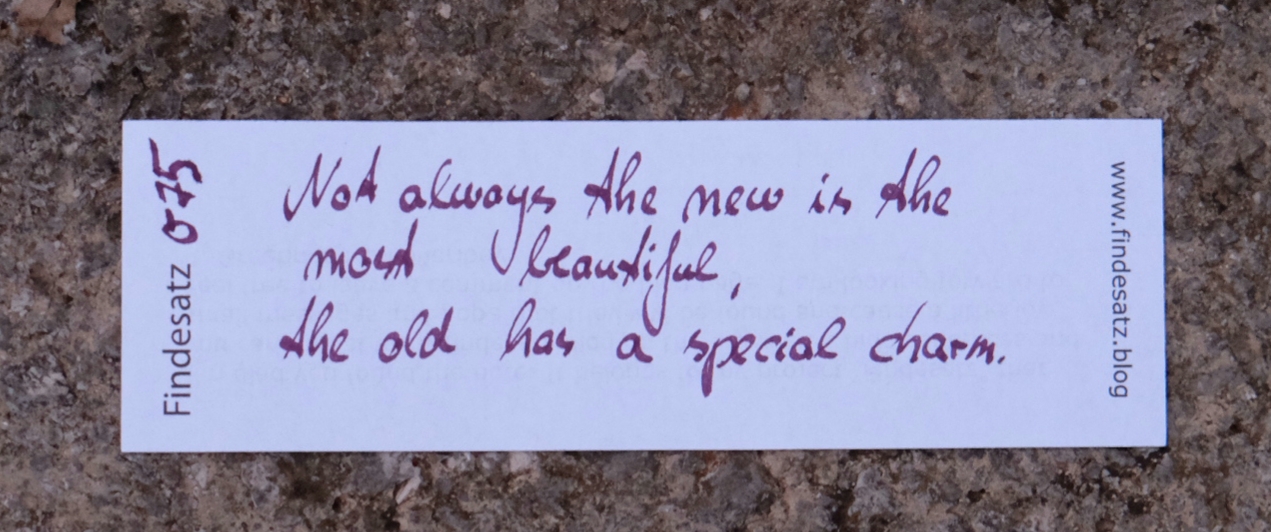 Findesatz 075
Not always the new is the
most beautiful,
the old has a special charm.
www.findesatz.blog